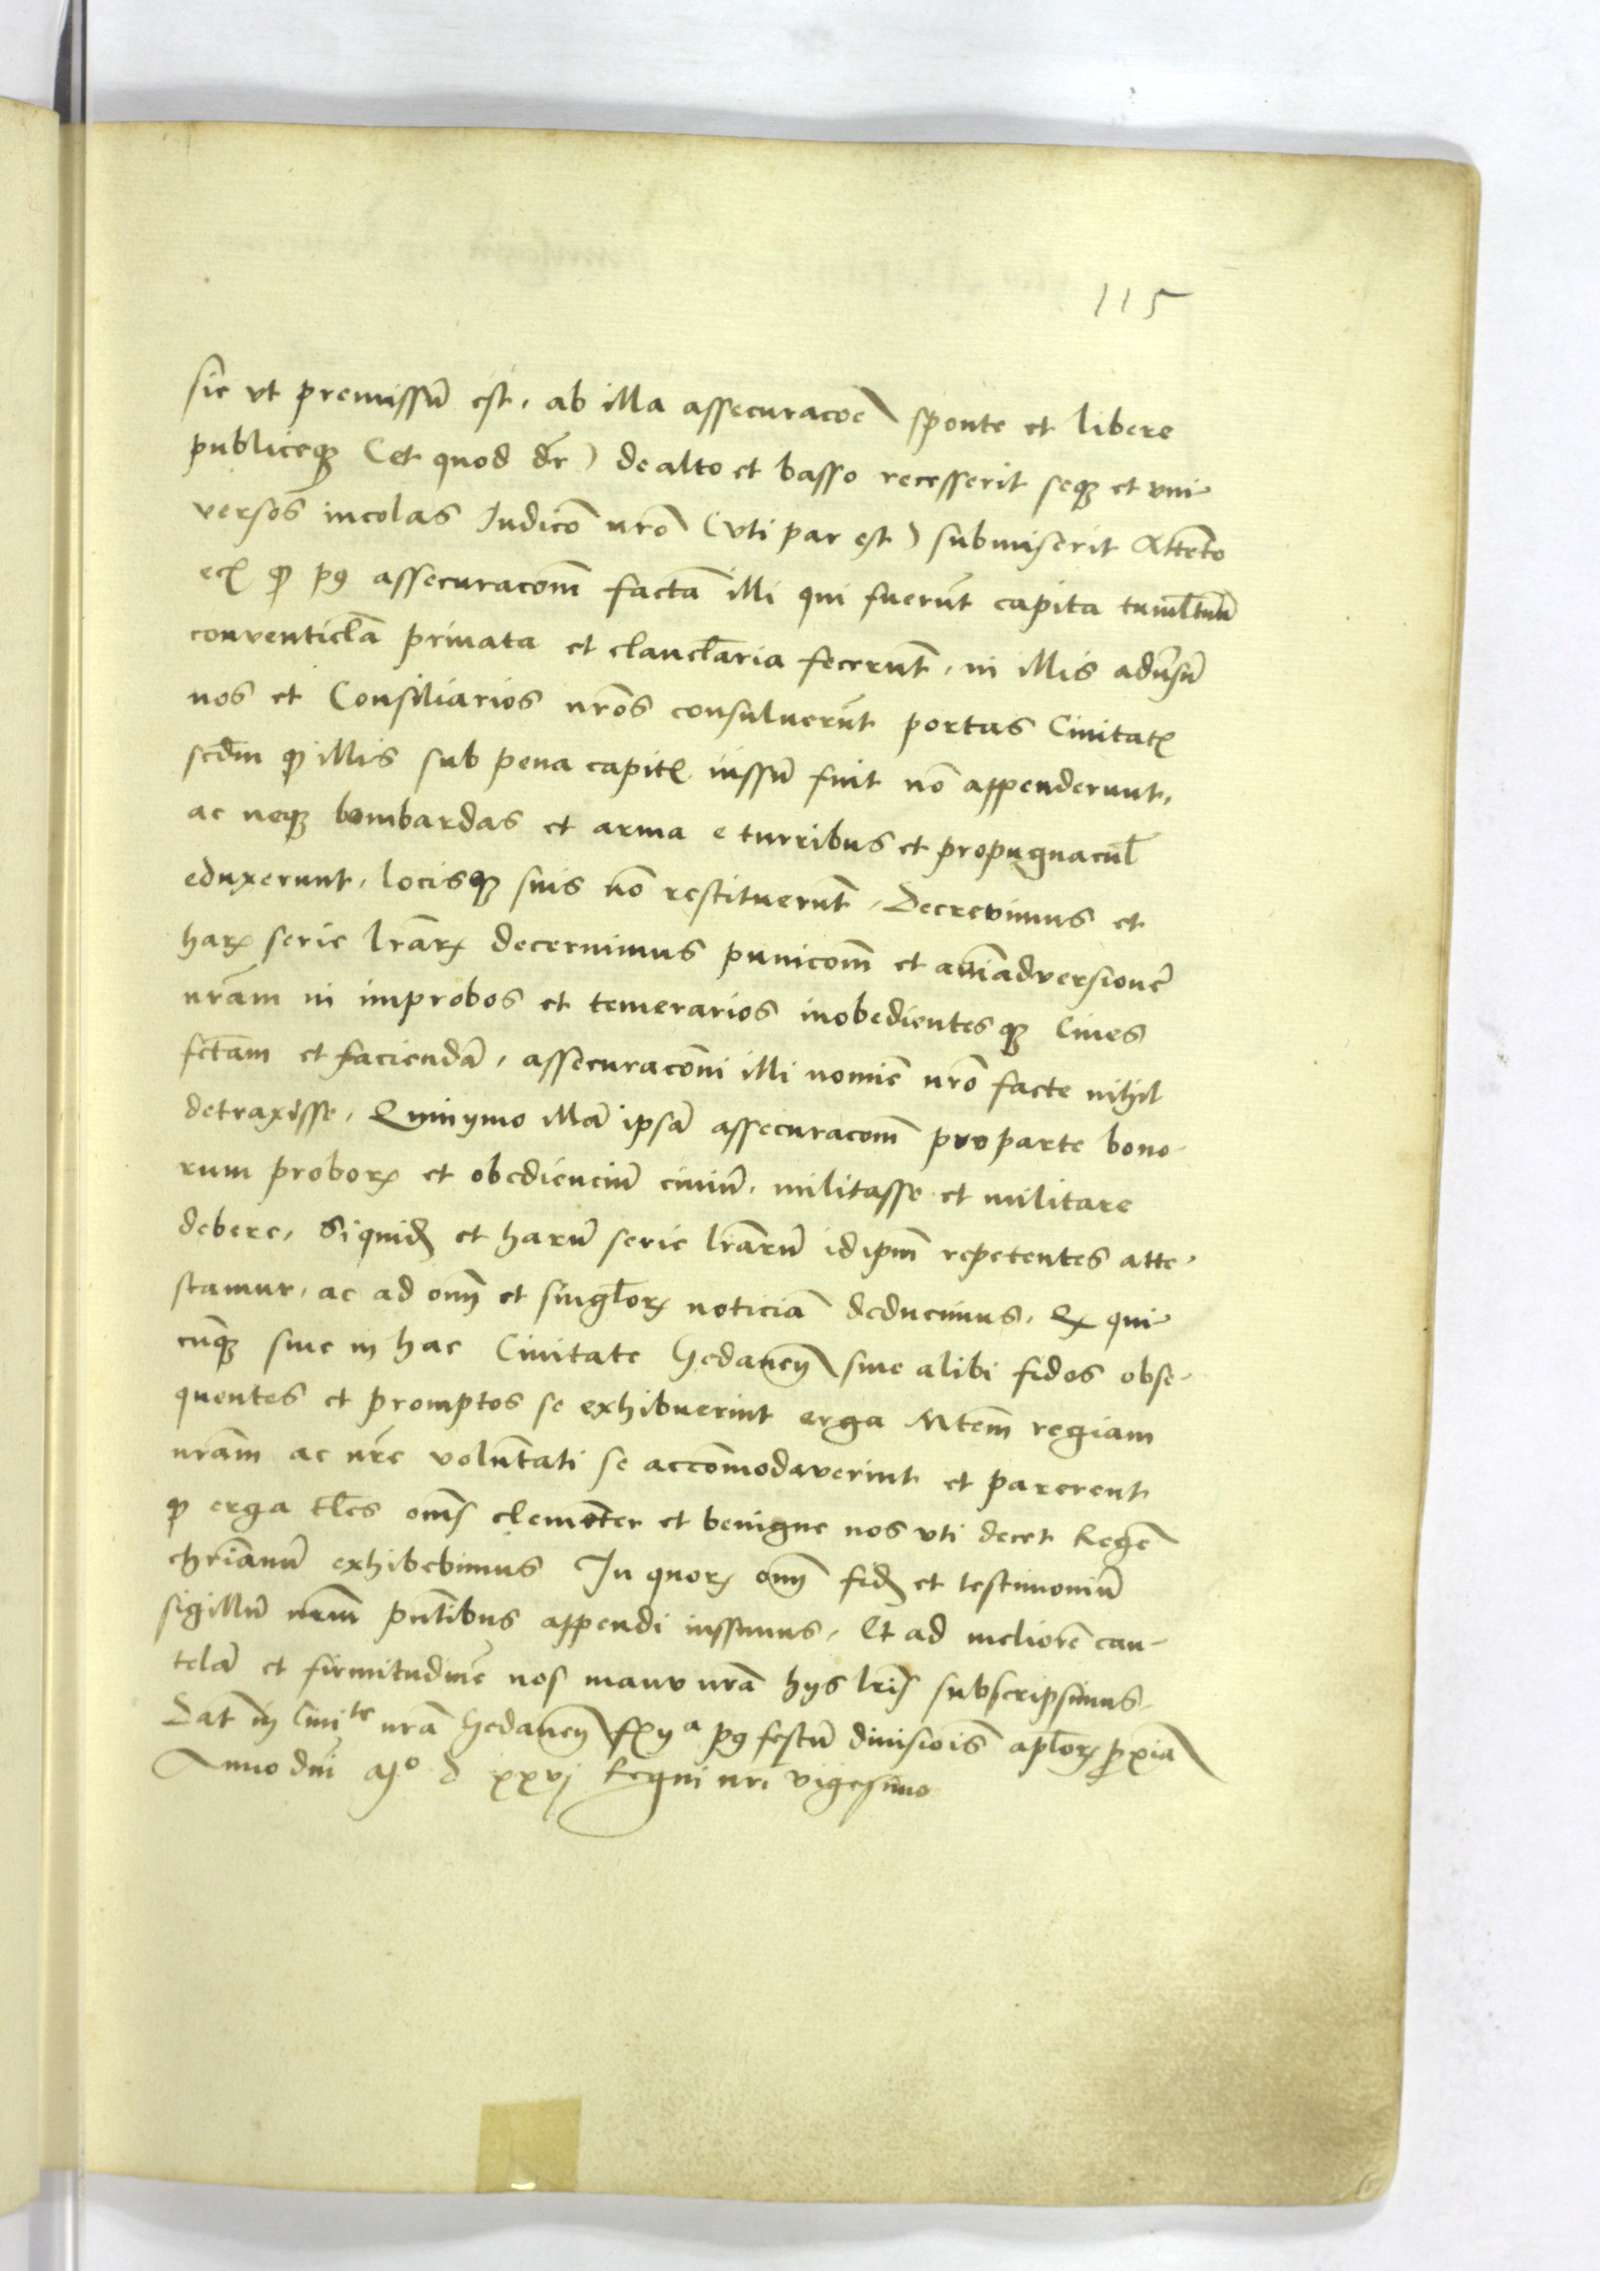 115
sic vt premissũ est, ab illa assecuracõe sponte et libere
publiceqꝫ (et quod dr̃) de alto et basso recesserit seqꝫ et vni
versos incolas Iudicio nr̃o (vti par est) submiserit Attento
eciã qꝙ pꝰ assecuracõm factã illi qui fuerũt capita tumĩtuũ
conventicl̃a priuata et clancl̃aria fecerũt, in illis advs̃um
nos et Consiliarios nr̃os consuluerũt portas Ciuitatꝭ
scdm̃ qꝙ illis sub pena capitꝭ iussũ fuit nõ appenderunt,
ac neqꝫ bombardas et arma e turribus et propugnacul̃
eduxerunt, locisqꝫ suis nõ restituerũt, Decrevimus et
harꝝ serie lr̃arꝝ decernimus punicõm et aĩadversionẽ
nr̃am in improbos et temerarios inobedientesqꝫ Ciues
fctam et faciendã, assecuracõni illi nomiẽ nr̃o facte nihil
detraxisse, Quinymo illã ipsã assecuracõm pro parte bono
rum proborꝝ et obedienciũ ciuiũ, militasse et militare
debere, Siquidẽ et harũ serie lr̃arũ idipm̃ repetentes atte
stamur, ac ad om̃ et singl̃orꝝ noticiã deducimus, Qꝙ qui
cũqꝫ siue in hac Ciuitate Gedaneñ siue alibi fidos obse
quentes et promptos se exhibuerint erga Mtem̃ regiam
nr̃am ac nr̃e volũtati se accõmodaverint et parerent
qꝙ erga tl̃es om̃s clemẽter et benigne nos vti decet Regẽ
chrĩanũ exhibebimus In quorꝝ om̃ fidẽ et testimoniũ
sigillũ nr̃m pñtibus appendi iussimus, Et ad meliorẽ cau
telã et firmitudinẽ nos manu nr̃a hys lr̃is subscripsimus
Dat̃ in Ciui^te nr̃a Gedaneñ f ^a pꝰ festũ diuisiõis apl̃orꝝ ꝓxĩa
Anno dñi Mº d xxvj Regni nr̃i vigesimo